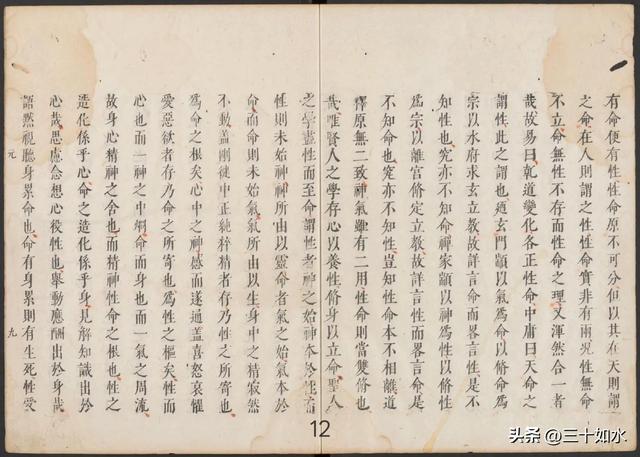 有命便有性性命原不可分但以其在天則謂
之命在人則謂之性性命實非有兩况性無命
不立命無性不存而性命之理又渾然合一者
哉故易曰乾道變化各正性命中庸曰天命之
謂性此之謂也廼玄門顓以氣為命以脩命為
宗以水府求玄立敎故詳言命而畧言性是不
知性也究亦不知命禪家顓以神為性以脩性
為宗以離宫脩定立敎故詳言性而畧言命是
不知命也究亦不知性豈知性命本不相離道
釋原無二致神氣雖有二用性命則當雙脩也
哉唯賢人之學存心以養性脩身以立命聖人
之學盡性而至命謂性者神之始神本於性而
性則未始神神所由以靈命者氣之始氣本於
命而命則未始氣氣所由以生身中之精寂然
不動蓋剛徤中正純粹精者存乃性之所寄也
為命之根矣心中之神感而遂通蓋喜怒哀懼
愛惡欲者存乃命之所寄也為性之樞矣性而
心也而一神之中烱命而身也而一氣之周流
故身心精神之舍也而精神性命之根也性之
造化係乎心命之造化係乎身見解知識出於
心哉思慮念想心役性也舉動應酬出於身哉
語默視聽身累命也命有身累則有生死性受
元 九
12
头条 @三十如水